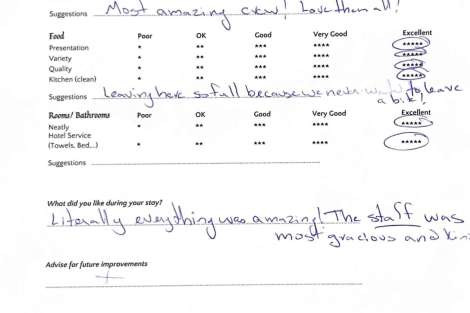 Suggestions Most amazing crew! Love them all!
Food Poor OK Good Very Good Excellent
Presentation * ** *** **** *****
Variety * ** *** **** *****
Quality * ** *** **** *****
Kitchen (clean) * ** *** **** *****
Suggestions Leaving here so full because we never to leave
a bite!
Rooms/ Bathrooms Poor OK Good Very Good Excellent
Neatly * ** *** **** *****
Hotel Service
(Towels, Bed...) * ** *** **** *****
Suggestions
What did you like during your stay?
Literally everything was amazing! The staff was
most gracious and kin
Advise for future improvements